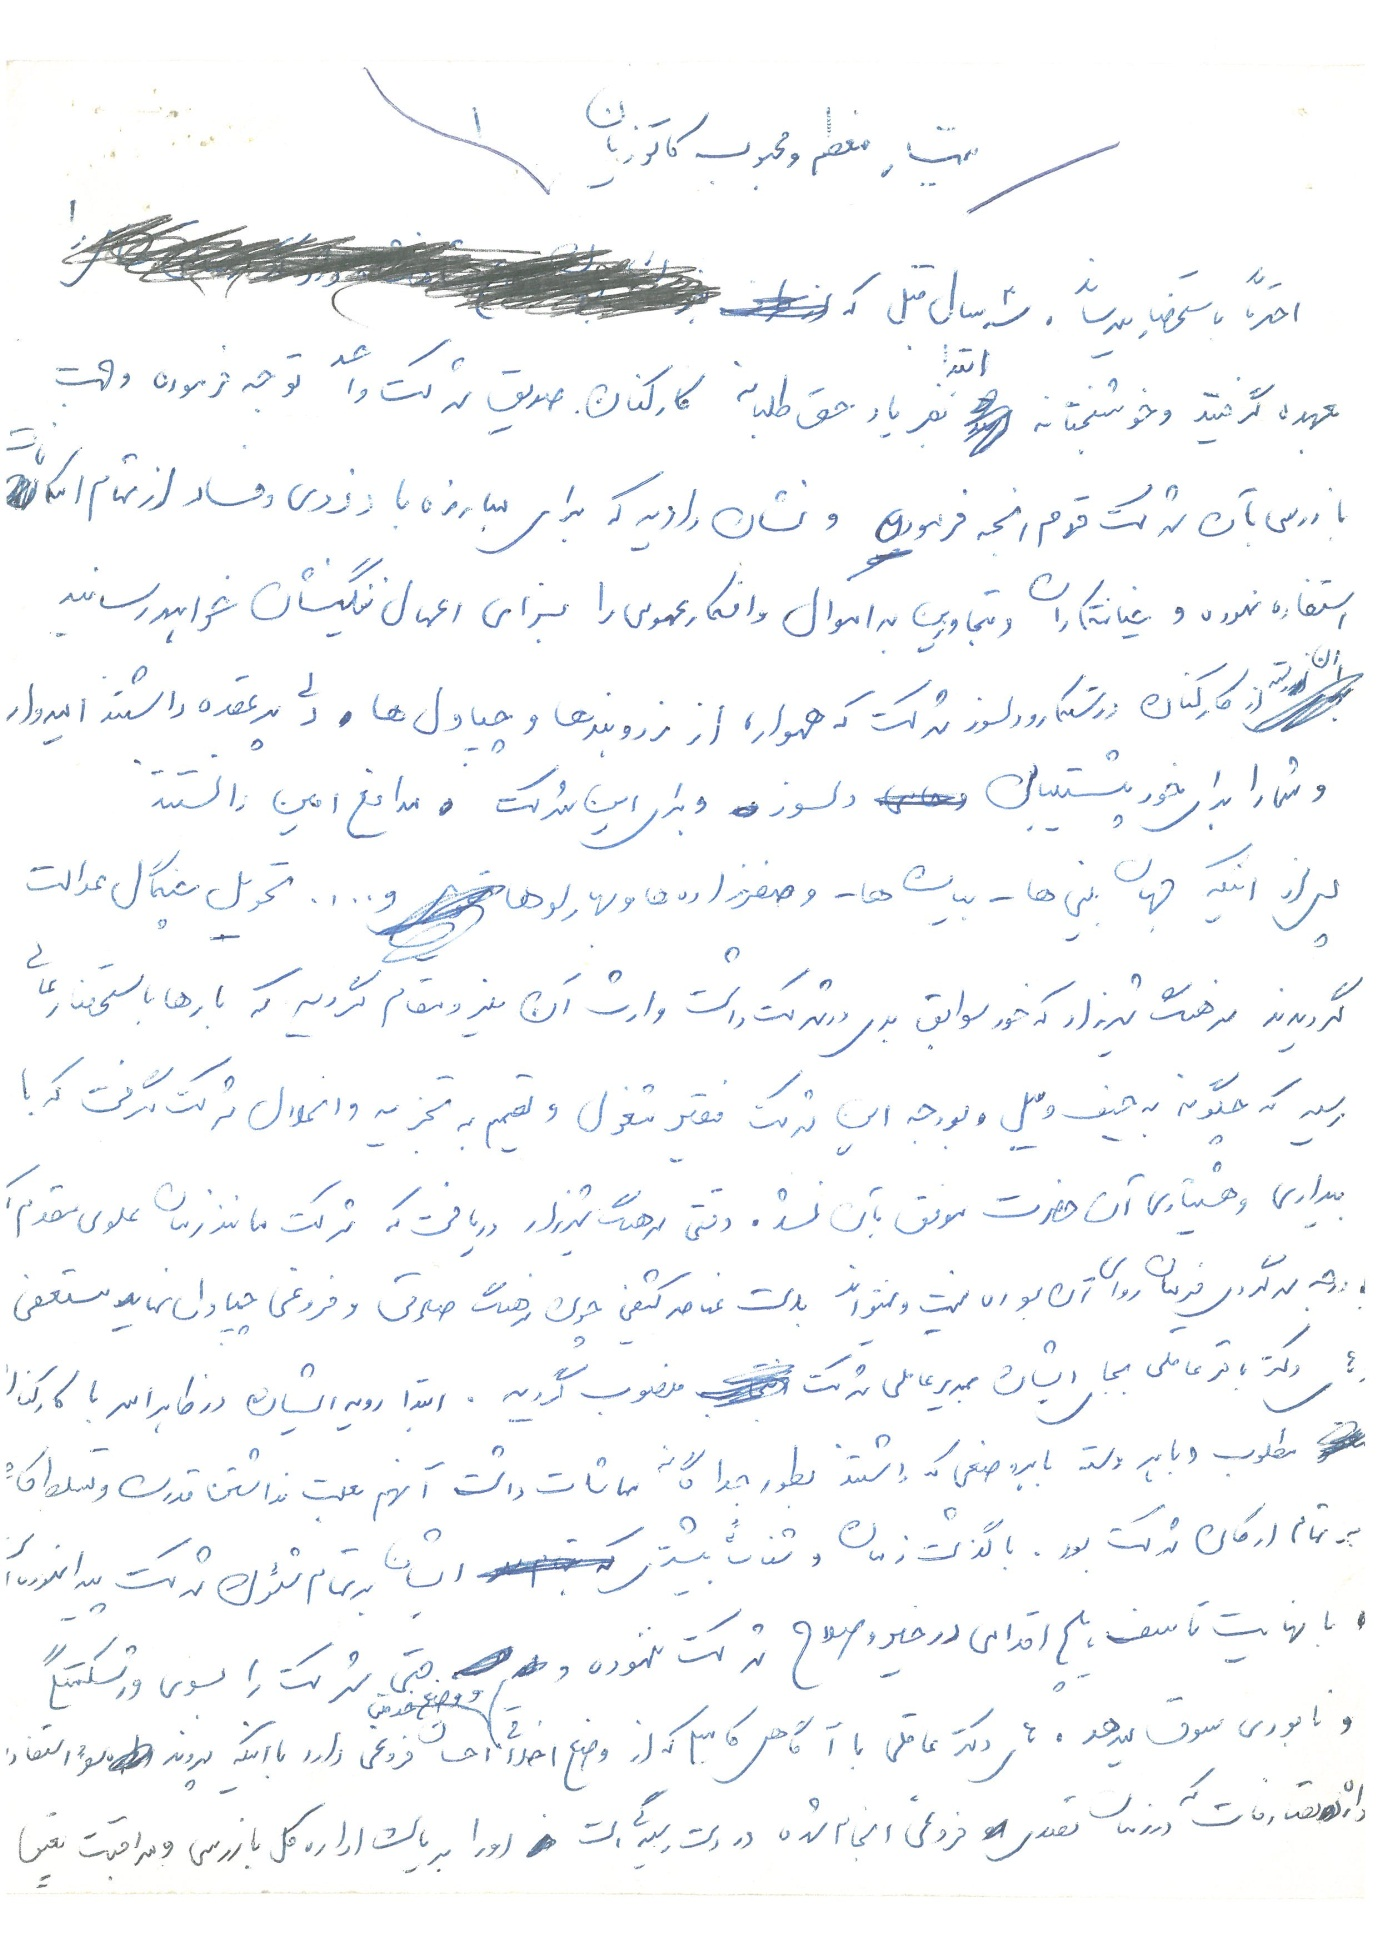 تیمسار معظم و محبوب کاتوزیان
احتراماً باستحضار میرساند. شش سال قبل که
بعهده گرفتید و خوشبختانه ابتدا بفریاد حق طلبانه کارکنان صدیق شرکت واحد توجه فرموده و هیئت
بازرسی بآن شرکت قدم رنجه فرموده و نشان دادید که برای مبارزه با دزدی و فساد از تمام امکانات
استفاده نموده و خیانتکاران و متجاوزین به اموال و افکار عمومی را بسزای اعمال ننگینشان خواهید رسانید
از کارکنان درستکار و دلسوز شرکت که همواره از زد و بندها و چپاول ها دلی پر عقده داشتند امیدوار
و شما را برای خود پشتیبانی دلسوز و برای این شرکت مدافع امین دانستند
پس از اینکه جهان بینی ها - ها - و صفرزاده ها و بهارلوها و .... تحویل چنگال عدالت
گردیدند سرهنگ شیرزاد که خود سوابق بدی در شرکت داشت وارث آن میز و مقام گردید که بارها باستحضار عالی
رسید که چگونه به حیف و میل بودجه این شرکت فقیر مشغول و تصمیم به تجزیه و انحلال شرکت گرفت که با
بیداری و هشیاری آن حضرت موفق بآن نشد. وقتی سرهنگ شیرزاد دریافت که شرکت مانند زمان علوی مقدم
سرگرد فرمان روای آن بوده نیست و نمیتواند بدست عناصر کثیفی چون سرهنگ صدوقی و فروغی چپاول نماید مستعفی
دکتر باقر عاملی بجای ایشان بمدیرعاملی شرکت منصوب گردید. ابتدا رویه ایشان در ظاهر امر با کارکنان
مطلوب و با هر دسته یا هر صنفی که داشتند بطور جداگانه مماشات داشت آنهم بعلت نداشتن قدرت و تسلط کافی
بر تمام ارکان شرکت بود. با گذشت زمان و شناخت بیشتری ایشان به تمام شئون شرکت پیدا نمودند
با نهایت تاسف هیچ اقدامی در خیر و صلاح شرکت ننموده و حتی شرکت را بسوی ورشکستگی
و نابودی سوق میدهد. دکتر عاملی با آگاهی کاملی که از وضع اخلاقی و وضع خدمتی احسان فروغی دارد با اینکه پرونده سوء استفاده
تصادفات که در زمان تصدی فروغی انجام شده در دست رسیدگی است او را به ریاست اداره کل بازرسی و مراقبت تعیین